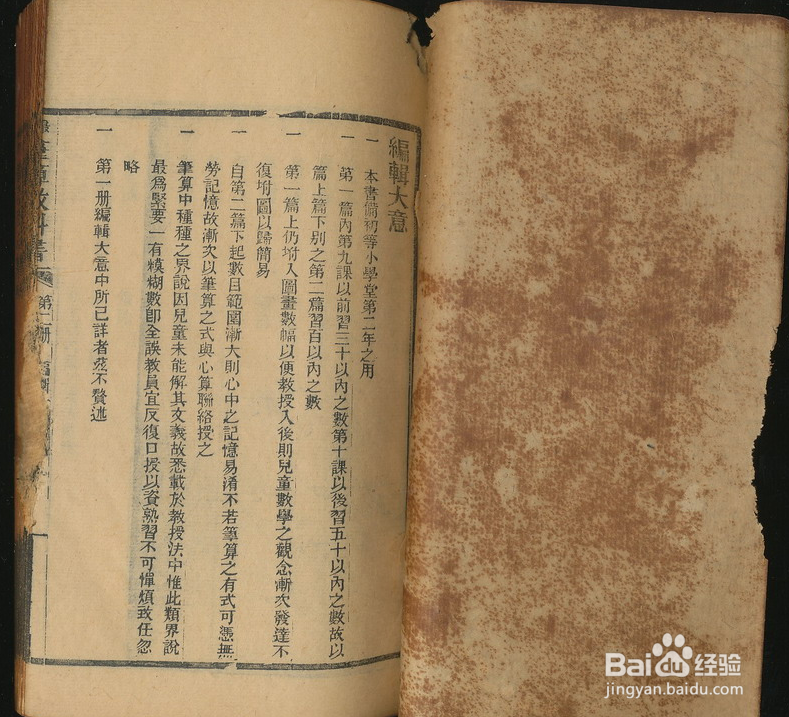 編輯大意
一 本書備初等小學堂第二年之用
一 第一篇內第九課以前習三十以內之數第十課以後習五十以內之數故以
篇上篇下別之第二篇習百以內之數
一 第一篇上仍坿入圖畫數幅以便敎授入後則兒童數學之觀念漸次發達不
復坿圖以歸簡易
一 自第二篇下起數目範圍漸大則心中之記憶易淆不若筆算之有式可憑無
勞記憶故漸次以筆算之式與心算聯絡授之
一 筆算中種種之界說因兒童未能解其文義故悉載於敎授法中惟此類界說
最爲緊要一有模糊數卽全誤敎員宜反復口授以資熟習不可憚煩致任忽
略
一 第一册編輯大意中所已詳者茲不贅述
筆算敎科書
第二册
Baidu经验
jingyan.baidu.com